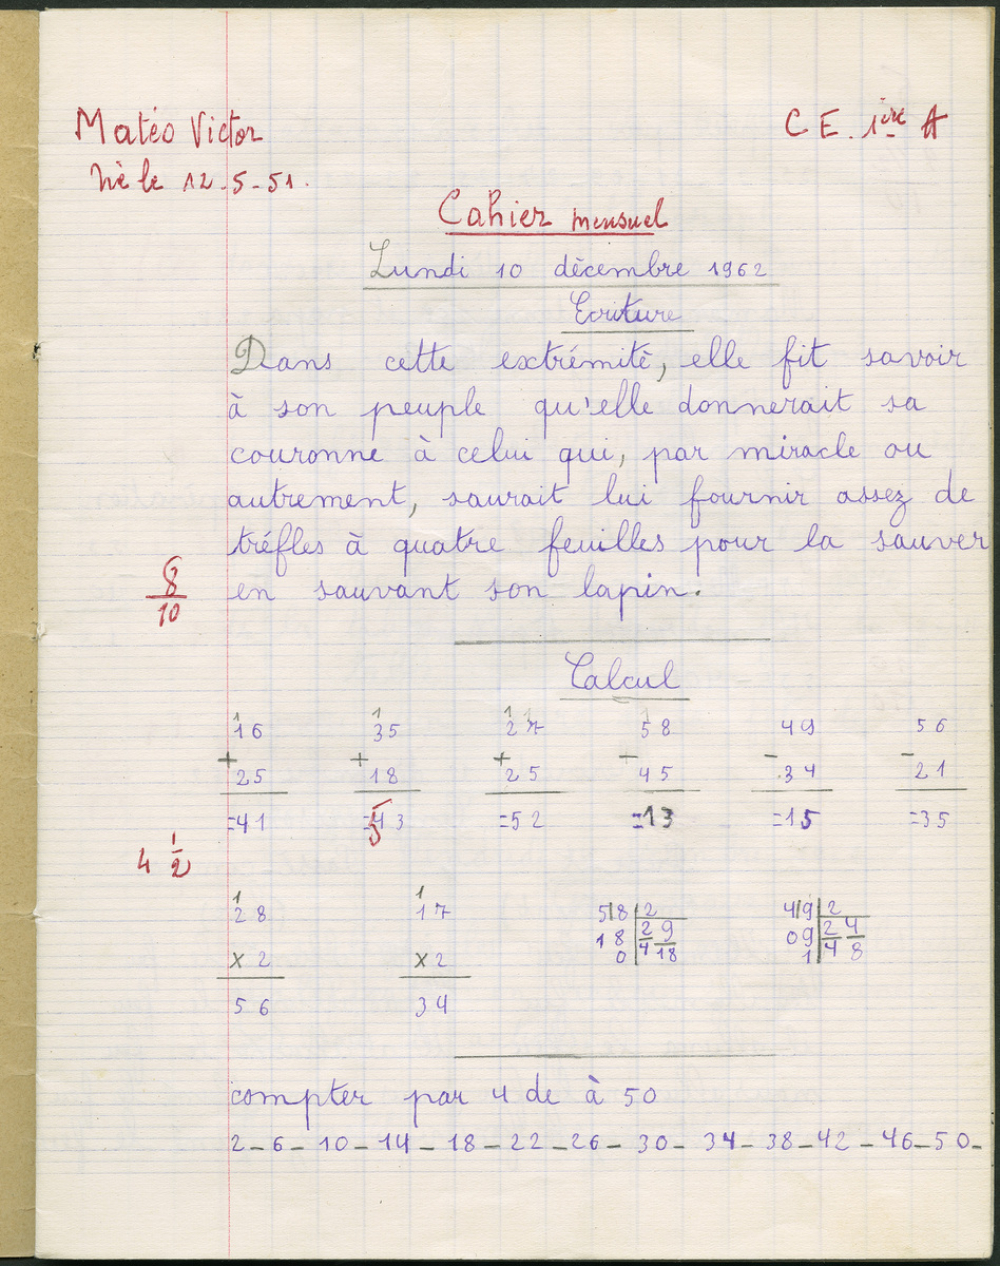 Matéo Victor
C E. 1ère A
Né le 12-5-51.
Cahier mensuel
Lundi 10 décembre 1962
Ecriture
Dans cette extrémité, elle fit savoir
à son peuple qu'elle donnerait sa
couronne à celui qui, par miracle ou
autrement, saurait lui fournir assez de
tréfles à quatre feuilles pour la sauver
en sauvant son lapin.
8/10
Calcul
1 1 1
16 35 27 58 49 56
+ + + - - -
25 18 25 45 34 21
=41 =43 =52 =13 =15 =35
5
4 1/2
1 1
28 17 5|8 | 2 4|9 | 2
x 2 x 2 18 | 2 9 09 | 2 4
0 | 4 18 1 | 4 8
56 34
compter par 4 de à 50
2 - 6 - 10 - 14 - 18 - 22 - 26 - 30 - 34 - 38 - 42 - 46 - 50 -